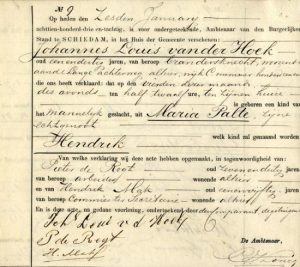 No 9
Op heden den Zesden Januarij
achttien-honderd-drie en-tachtig, is voor mij ondergeteekende, Ambtenaar van den Burgerlijken
Stand te SCHIEDAM, in het Huis der Gemeente verschenen:
Johannes Louis van der Hoek
oud eenendertig jaren, van beroep brandersknecht, wonende
aan de lange achterweg alhier, wijk C nummer honderd
die ons heeft verklaard: dat op den vierden dezer maand
des avonds ten half twaalf ure, ten zijnen huize
is geboren een kind van
het mannelijk geslacht, uit Maria Palle, zijne
echtgenoot
welk kind zal genaamd worden
Hendrik
Van welke verklaring wij deze acte hebben opgemaakt, in tegenwoordigheid van:
Pieter de Regt oud zevenendertig jaren
van beroep arbeider wonende alhier
en van Hendrik Mak oud jaren
van beroep Commies ter Secretarie wonende alhier
En is deze acte, na gedane voorlezing, onderteekend door
Joh Louis v. d. Hoek
P de Regt
H. Mak
De Ambtenaar,